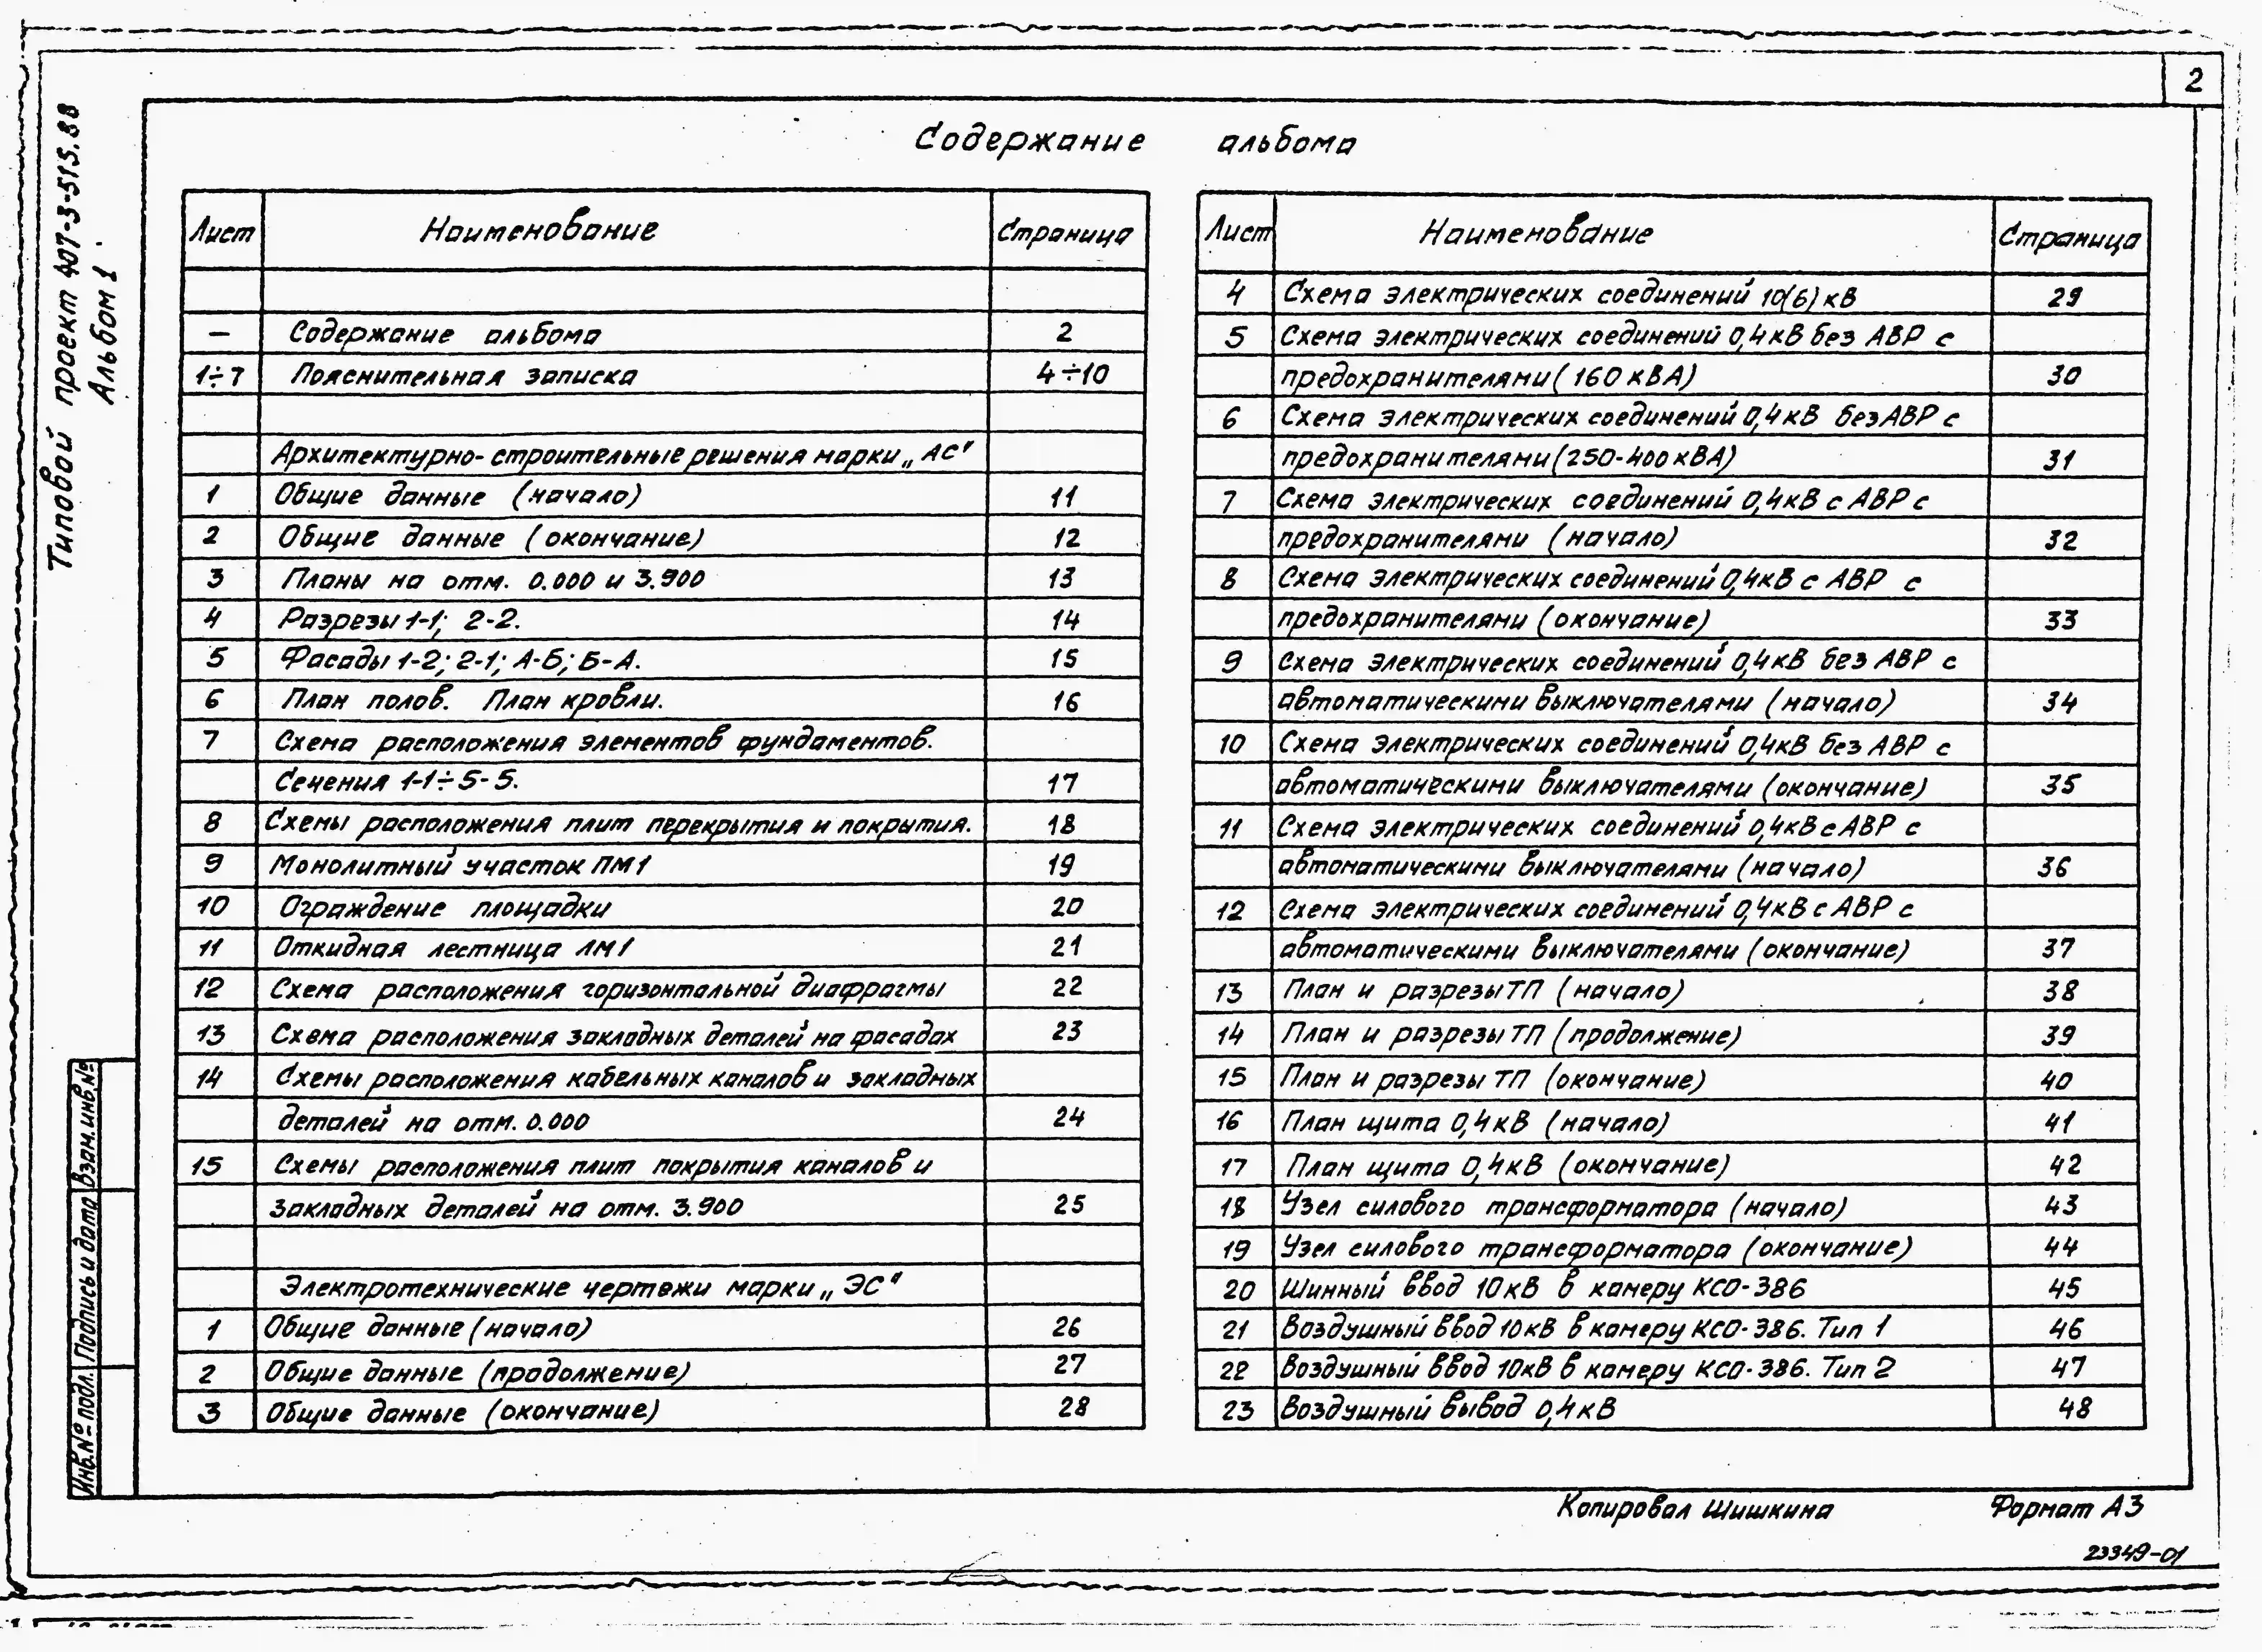 2
Типовой проект 407-3-515.88
Альбом 1
Содержание альбома
Лист Наименование Страница
— Содержание альбома 2
1÷7 Пояснительная записка 4÷10
Архитектурно-строительные решения марки „АС"
1 Общие данные (начало) 11
2 Общие данные (окончание) 12
3 Планы на отм. 0.000 и 3.900 13
4 Разрезы 1-1; 2-2. 14
5 Фасады 1-2; 2-1; А-Б; Б-А. 15
6 План полов. План кровли. 16
7 Схема расположения элементов фундаментов.
Сечения 1-1÷5-5. 17
8 Схемы расположения плит перекрытия и покрытия. 18
9 Монолитный участок ПМ1 19
10 Ограждение площадки 20
11 Откидная лестница ЛМ1 21
12 Схема расположения горизонтальной диафрагмы 22
13 Схема расположения закладных деталей на фасадах 23
14 Схемы расположения кабельных каналов и закладных
деталей на отм. 0.000 24
15 Схемы расположения плит покрытия каналов и
закладных деталей на отм. 3.900 25
Электротехнические чертежи марки „ЭС"
1 Общие данные (начало) 26
2 Общие данные (продолжение) 27
3 Общие данные (окончание) 28
Лист Наименование Страница
4 Схема электрических соединений 10(6) кВ 29
5 Схема электрических соединений 0,4кВ без АВР с
предохранителями (160 кВА) 30
6 Схема электрических соединений 0,4кВ без АВР с
предохранителями (250-400 кВА) 31
7 Схема электрических соединений 0,4кВ с АВР с
предохранителями (начало) 32
8 Схема электрических соединений 0,4кВ с АВР с
предохранителями (окончание) 33
9 Схема электрических соединений 0,4кВ без АВР с
автоматическими выключателями (начало) 34
10 Схема электрических соединений 0,4кВ без АВР с
автоматическими выключателями (окончание) 35
11 Схема электрических соединений 0,4кВ с АВР с
автоматическими выключателями (начало) 36
12 Схема электрических соединений 0,4кВ с АВР с
автоматическими выключателями (окончание) 37
13 План и разрезы ТП (начало) 38
14 План и разрезы ТП (продолжение) 39
15 План и разрезы ТП (окончание) 40
16 План щита 0,4кВ (начало) 41
17 План щита 0,4кВ (окончание) 42
18 Узел силового трансформатора (начало) 43
19 Узел силового трансформатора (окончание) 44
20 Шинный ввод 10кВ в камеру КСО-386 45
21 Воздушный ввод 10кВ в камеру КСО-386. Тип 1 46
22 Воздушный ввод 10кВ в камеру КСО-386. Тип 2 47
23 Воздушный вывод 0,4кВ 48
Инв.№ подл. Подпись и дата Взам.инв.№
Копировал Шишкина Формат А3
23349-01